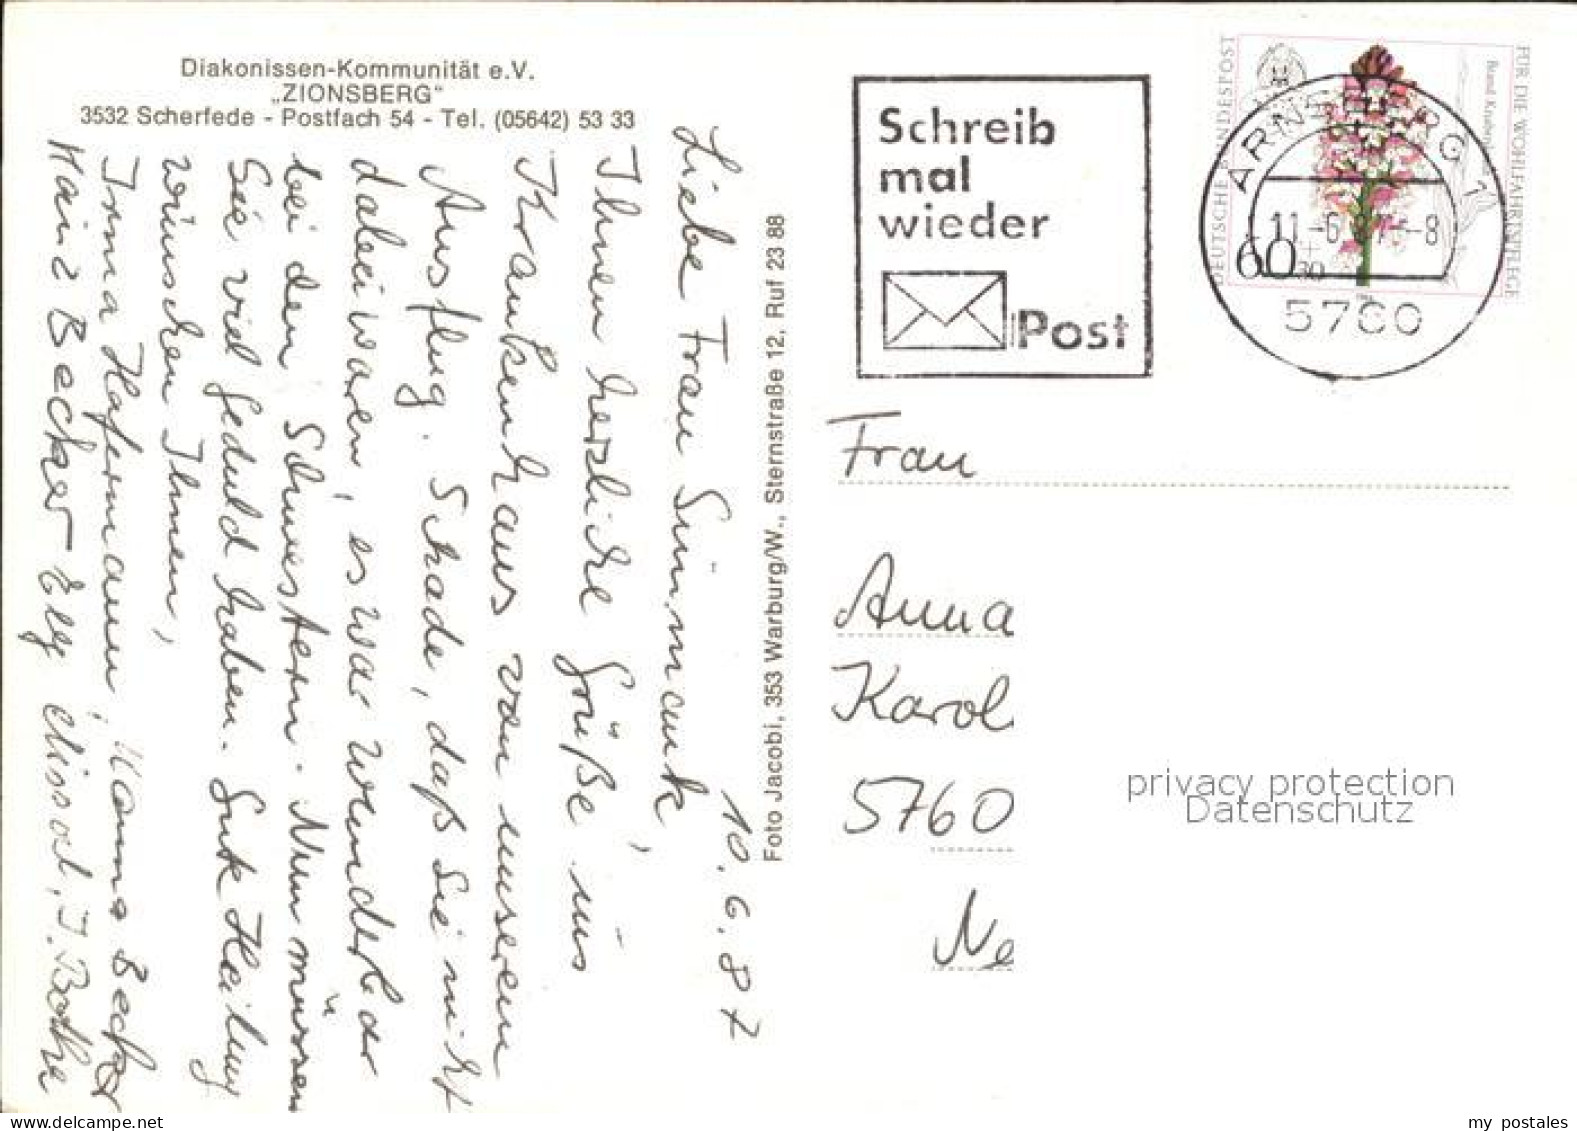 Diakonissen-Kommunität e.V.
„ZIONSBERG"
3532 Scherfede - Postfach 54 - Tel. (05642) 53 33
10.6.87
Liebe Frau Sümmank,
Ihnen herzliche Grüße ins
Krankenhaus von unserem
Ausflug. Schade, daß Sie nicht
dabei waren, es war wunderbar
bei den Schwestern. Nun müssen
Sie viel Geduld haben. Gute Heilung
wünschen Ihnen,
Irma Hafermann, Hanna Becker
Hainz Becker Elly Elissat, I. Bothe
Foto Jacobi, 353 Warburg/W., Sternstraße 12, Ruf 23 88
Schreib
mal
wieder
Post
DEUTSCHE BUNDESPOST
FÜR DIE WOHLFAHRTSPFLEGE
60+30
ARNSBERG 1
11.-6.87.-8
5760
Frau
Anna
Karol
5760
Ne
privacy protection
Datenschutz
my postales